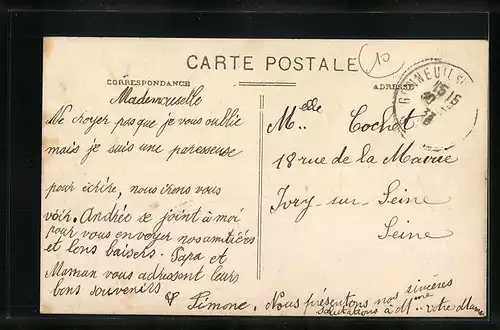 CARTE POSTALE
10
CORRESPONDANCE
ADRESSE
15 15
Mademoiselle
Ne croyer pas que je vous oublie
mais je suis une paresseuse
pour écrire, nous irons vous
voir. Andrée se joint à moi
pour vous envoyer nos amitiées
et bons baisers. Papa et
Maman vous adressent leurs
bons souvenirs
Simone.
Nous présentons nos sincères
salutations à Mme votre Maman
Melle Cochet
18 rue de la Mairie
Ivry-sur-Seine
Seine